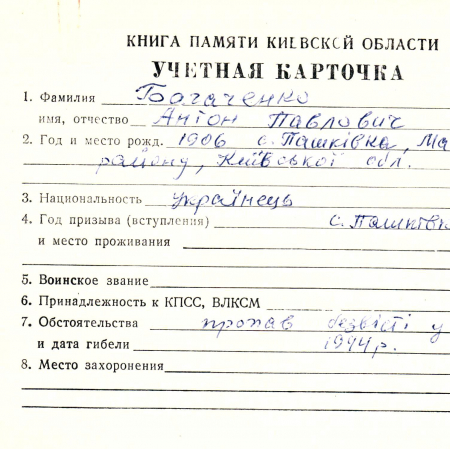 КНИГА ПАМЯТИ КИЕВСКОЙ ОБЛАСТИ
УЧЕТНАЯ КАРТОЧКА
1. Фамилия Богаченко
имя, отчество Антон Павлович
2. Год и место рожд. 1906 с. Пашківка, Ма
району, Київської обл.
3. Национальность українець
4. Год призыва (вступления) с. Пашків
и место проживания
5. Воинское звание
6. Принадлежность к КПСС, ВЛКСМ
7. Обстоятельства пропав безвісті у
и дата гибели 1944 р.
8. Место захоронения